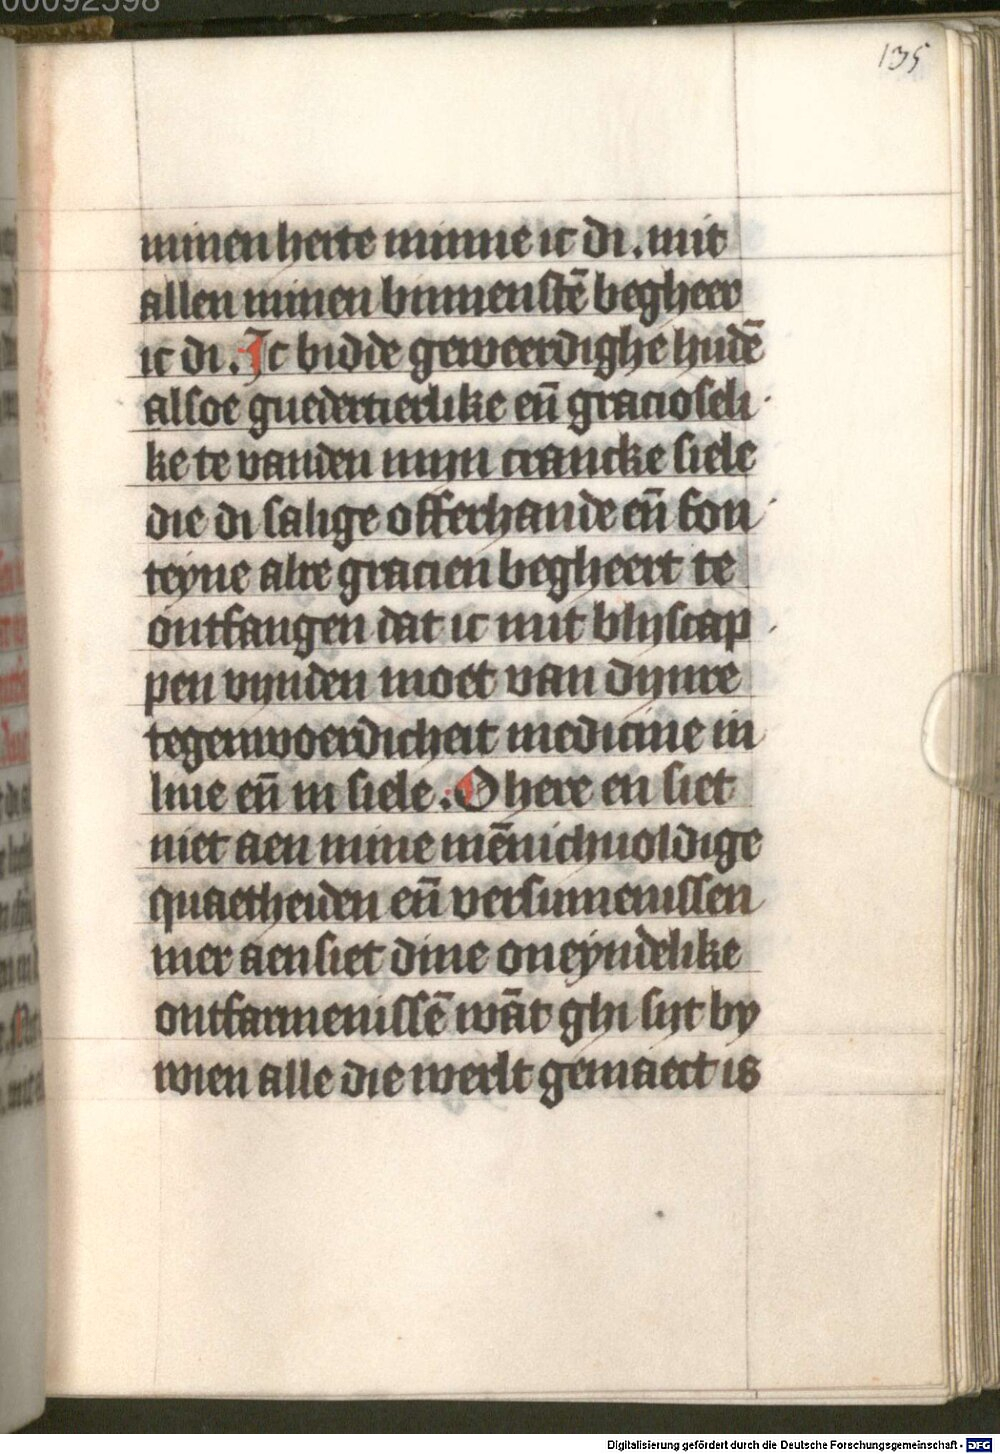 00092598
135
minen herte minne ic di. mit
allen minen binnenstē begheer
ic di. Ic bidde geweerdighe hudē
alsoe guedertierlike eñ gracioseli
ke te vanden mijn crancke siele
die di salige offerhande eñ fon
teyne alre gracien begheert te
ontfangen dat ic mit blijscap
pen vijnden moet van dijnre
tegenwoerdicheit medicine in
liue eñ in siele. O here en siet
niet aen mine mēnichuoldige
quaetheiden eñ versumenissen
mer aensiet dine oneyndelike
ontfarmenissē wāt ghi sijt by
wien alle die werlt gemaect is
Digitalisierung gefördert durch die Deutsche Forschungsgemeinschaft - DFG